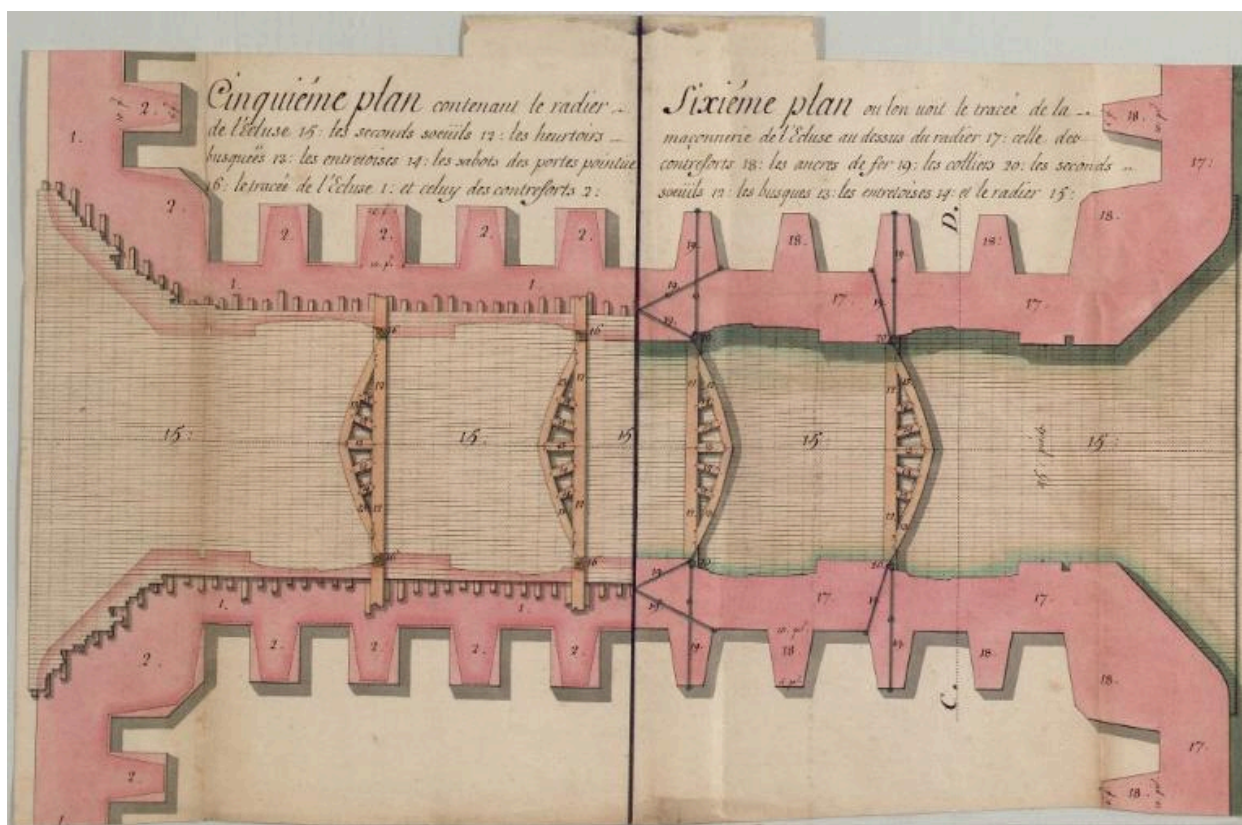 Cinquiéme plan contenant le radier
de l'écluse 15: les seconds soeüils 12: les heurtoirs
busqueés 13: les entretoises 14: les sabots des portes pointue
16: le tracée de l'Ecluse 1: et celuy des contreforts 2:
Sixiéme plan ou lon voit le tracée de la
maçonnerie de l'Ecluse au dessus du radier 17: celle des
contreforts 18: les ancres de fer 19: les colliers 20: les seconds
soeüils 12: les busques 13: les entretoises 14: et le radier 15:
2.
18.
1.
17:
2.
18.
2.
2.
2.
2.
19.
18.
19.
18:
D.
1.
1.
19.
17.
19.
17.
19.
16
16
20
20.
12
12
15:
15.
15
15:
15:
45 pieds
12
12
16
16
20
20.
1.
1.
19.
19.
17.
19.
17.
2.
2.
2.
2.
2.
19.
18
19.
18.
C.
18.
17.
2.
18.
1.